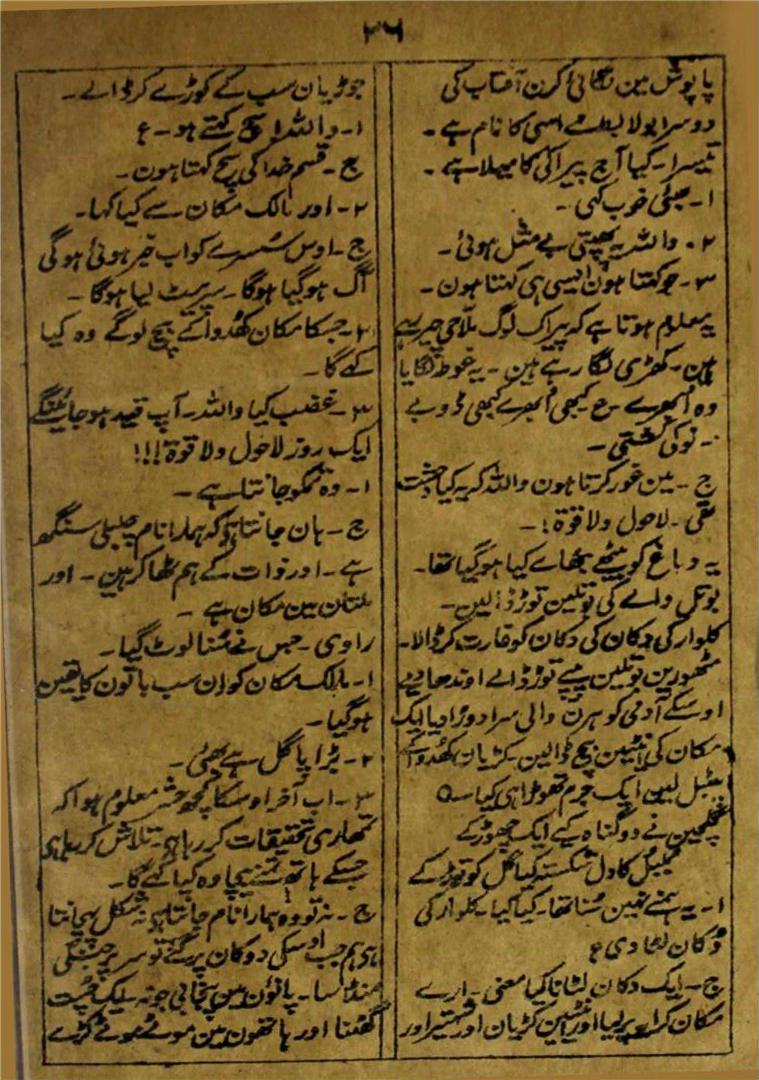 ۳۶
پاپوش مین لگائی کرن آفتاب کی
دوسرا بولا لطف اسی کا نام ہے۔
تیسرا۔ کیا آج پیراکی کا میلا ہے۔
۱۔ بھئی خوب کہی۔
۲۔ واللہ یہ پھبتی بے مثل ہوئی۔
۳۔ جو کہتا ہون ایسی ہی کہتا ہون۔
یہ معلوم ہوتا ہے کہ پیراک لوگ ملاحی چیر رہے
ہین۔ کھڑی لگا رہے ہین۔ یہ غوطہ لگایا
وہ اُبھرے۔ ع کبھی اُبھرے کبھی ڈوبے
کشتی۔
ج۔ مین غور کرتا ہون واللہ کہ یہ کیا وحشت
تھی۔ لاحول ولا قوۃ!۔
یہ دماغ کو بیٹھے بٹھاے کیا ہو گیا تھا۔
بوتل والے کی بوتلین توڑ ڈالین۔
کلوار کی دوکان کی دکان کو غارت کر ڈالا۔
بوتلین پیپے توڑ ڈالے اوندھا دیے
اوسکے آدمی کو ہرن والی سرا دوڑا دیا ایک
مکان کی اینٹین بیچ ڈالین۔ کڑیان کھُدوا کے
لین ایک جرم تھوڑا ہی کیا ہے
گلچین نے دو گناہ کیے ایک چھوڑ کے
بلبل کا دل شکستہ کیا گل کو توڑ کے
۱۔ یہ ہمنے نہین سُنا تھا۔ کیا کیا۔ کلوار کی
دُکان لُٹا دی ؟
ج۔ ایک دکان لٹانا کیا معنی۔ ارے
مکان کراے پر لیا اور اینٹین کڑیان اور شہتیر اور
جوڑیان سب کے کوڑے کر ڈالے۔
۱۔ واللہ! سچ کہتے ہو۔ ؟
ج۔ قسم خدا کی سچ کہتا ہون۔
۲۔ اور مالک مکان سے کیا کہا۔
ج۔ اوس سُسرے کو اب خبر ہوئی ہوگی
آگ ہوگیا ہوگا۔ سر پیٹ لیا ہوگا۔
۲۔ جسکا مکان کھُدوا کے بیچ لوگے وہ کیا
کہے گا۔
۳۔ غضب کیا واللہ۔ آپ قید ہو جائینگے
ایک روز لاحول ولا قوۃ!!!
۱۔ وہ تمکو جانتا ہے۔
ج۔ ہان جانتا ہے کہ ہمارا نام چنبیلی سنگھ
ہے۔ اور ذات کے ہم ٹھاکر ہین۔ اور
ملتان مین مکان ہے۔
راوی۔ جس نے سُنا لوٹ گیا۔
۱۔ مالک مکان کو ان سب باتون کا یقین
ہوگیا۔
۲۔ بڑا پاگل ہے بھئی۔
۳۔ اب آخر اوسکا کچھ حشر معلوم ہوا کہ
تمھاری تحقیقات کر رہا ہے۔ تلاش کر رہا ہی
جسکے ہاتھ تمنے بیچا وہ کیا کہے گا۔
ج۔ نہ تو وہ ہمارا نام جانتا ہی نہ شکل پہچانتا
ہی ہم جب اوسکی دوکان پر گئے تو سر پر جنگی
منڈاسا۔ پانوُن مین پنجابی جوتہ۔ ایک چُست
گھٹنا اور ہاتھون مین موٹے موٹے کڑے